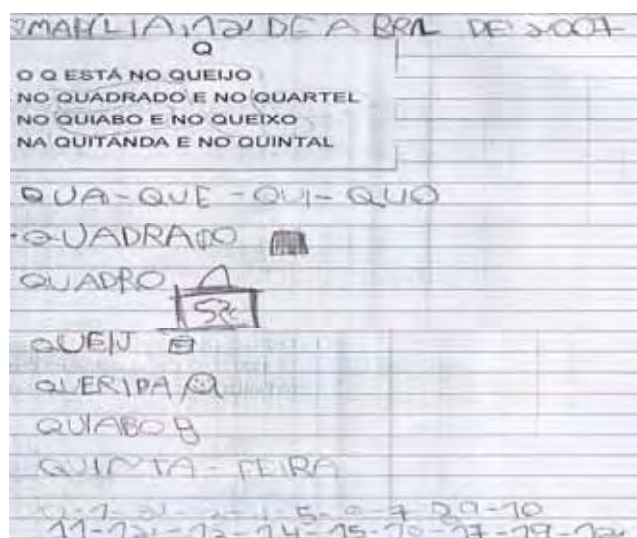 MARÍLIA, 12 DE ABRIL DE 2007
Q
O Q ESTÁ NO QUEIJO
NO QUADRADO E NO QUARTEL
NO QUIABO E NO QUEIXO
NA QUITANDA E NO QUINTAL
QUA-QUE-QUI-QUO
QUADRADO
QUADRO
QUEIJ
QUERIDA
QUIABO
QUINTA-FEIRA
11-12-13-14-15-10-17-19-